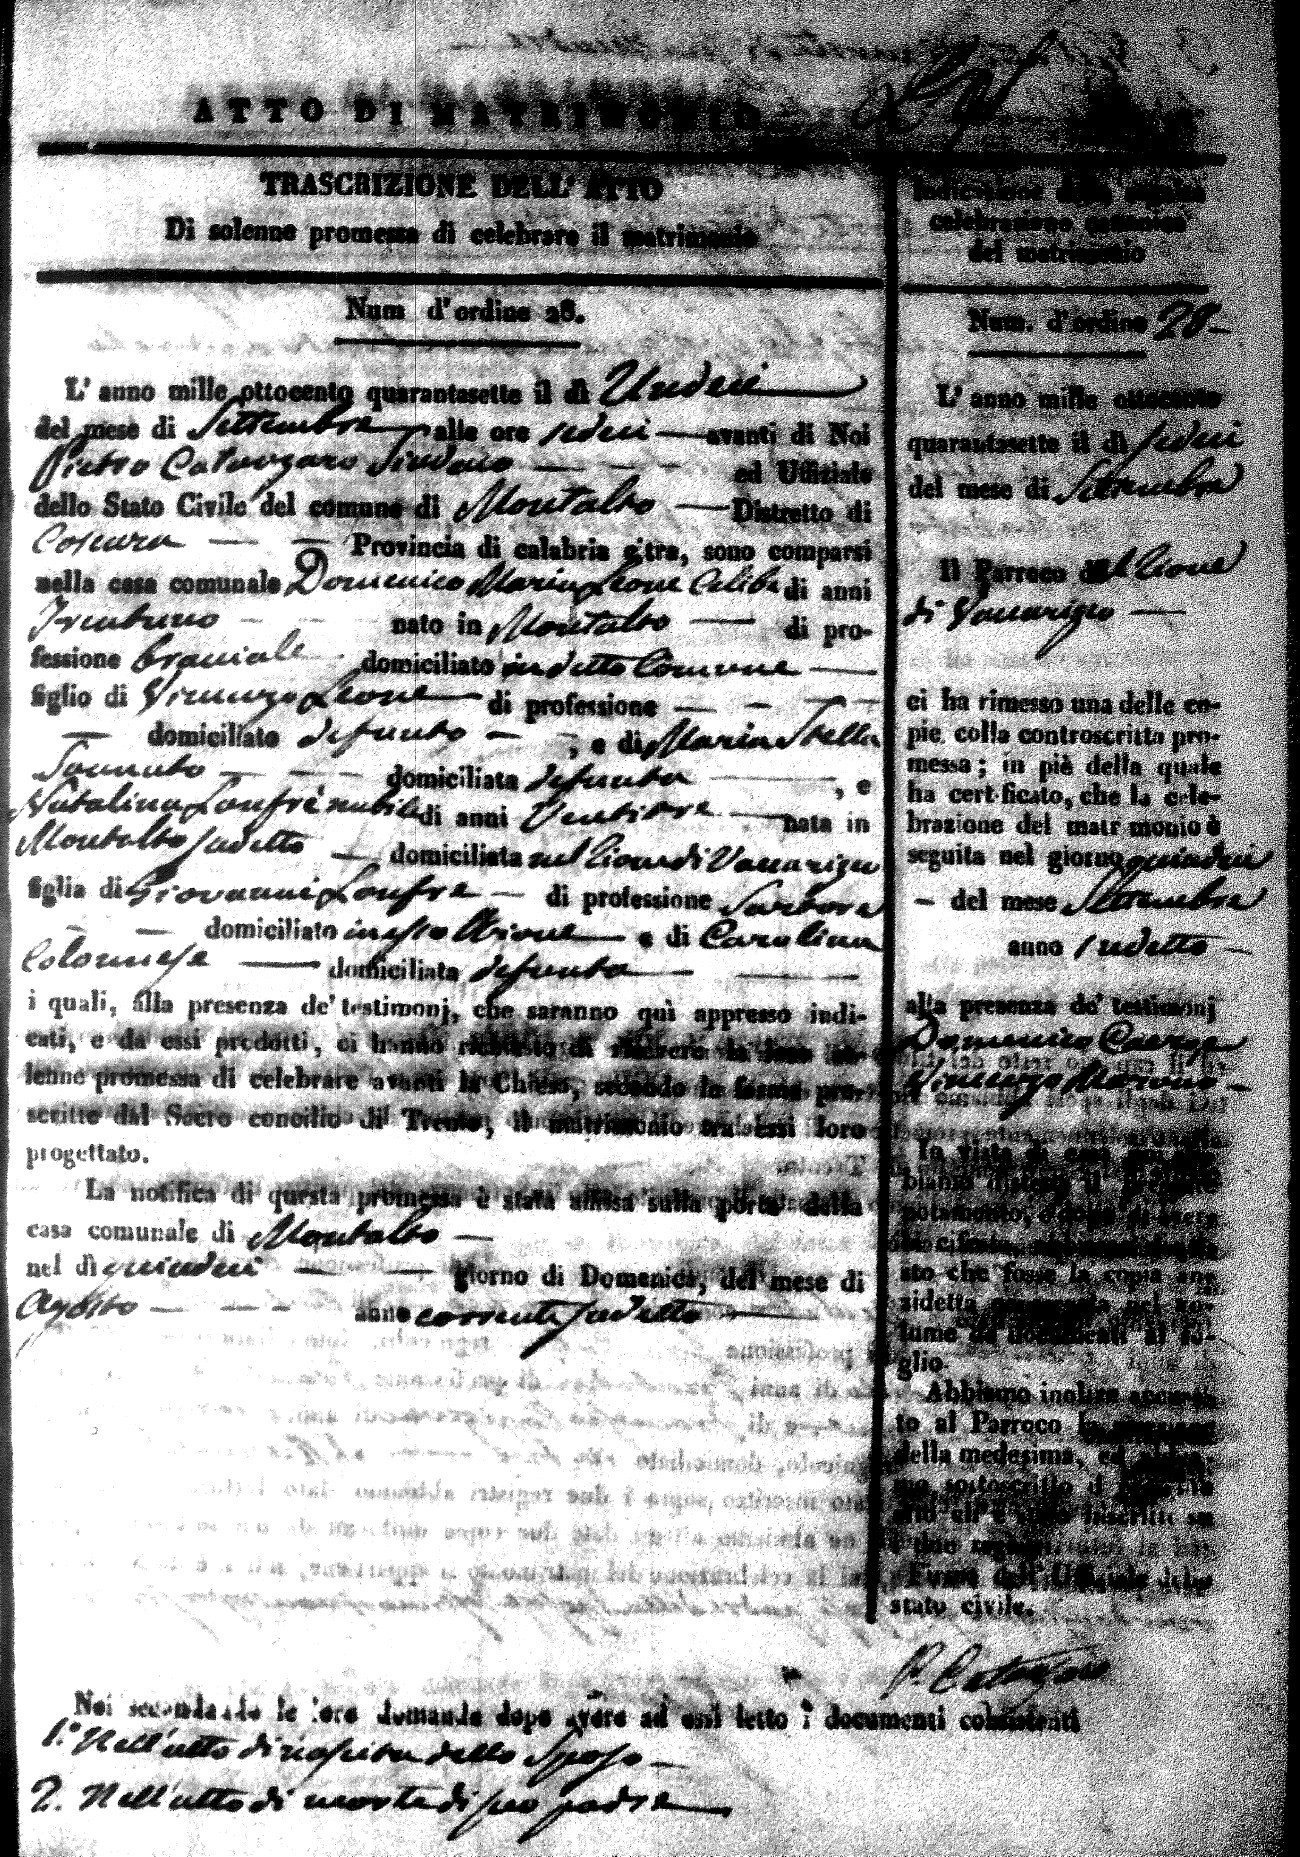 ATTO DI MATRIMONIO
TRASCRIZIONE DELL' ATTO
Di solenne promessa di celebrare il matrimonio
Num d'ordine 28.
L' anno mille ottocento quarantasette il dì Undeci
del mese di Settembre alle ore sedeci avanti di Noi
Pietro Catanzaro Sindaco ed Uffiziale
dello Stato Civile del comune di Montalto Distretto di
Cosenza Provincia di calabria citra, sono comparsi
nella casa comunale Domenico Maria Leone Celibe di anni
Trentuno nato in Montalto di pro-
fessione Braciale domiciliato in detto Comune
figlio di Vincenzo Leone di professione
domiciliato defunto , e di Maria Stella
domiciliata defunta , e
Natalina Lonfrè nubile di anni Ventitre nata in
Montalto sudetto domiciliata nel Rione di Vaccarizzo
figlia di Giovanni Lonfre di professione Sartore
domiciliato in esso Rione e di Carolina
Colonnese domiciliata defunta
i quali, alla presenza de' testimonj, che saranno quì appresso indi-
cati, e da essi prodotti, ci hanno richiesto di ricevere la loro so-
lenne promessa di celebrare avanti la Chiesa, secondo le forme pre-
scritte dal Sacro concilio di Trento, il matrimonio tra essi loro
progettato.
La notifica di questa promessa è stata affissa sulla porta della
casa comunale di Montalto
nel dì quindeci giorno di Domenica, del mese di
Agosto anno corrente sudetto
Noi secondando le loro domande dopo avere ad essi letto i documenti consistenti
1.° Nell'atto di nascita dello Sposo
2. Nell'atto di morte di suo padre
Indicazione della seguita
celebrazione canonica
del matrimonio
Num. d'ordine 28
L' anno mille ottocento
quarantasette il dì sedeci
del mese di Settembre
Il Parroco del Rione
di Vaccarizzo
ci ha rimesso una delle co-
pie colla controscritta pro-
messa; in piè della quale
ha certificato, che la cele-
brazione del matrimonio è
seguita nel giorno quindeci
del mese Settembre
anno sudetto
alla presenza de' testimonj
Domenico
Vincenzo
In vista di essa
sto che fosse la copia an-
zidetta
lume de documenti al fo-
glio
Abbiamo inoltre accusa-
to al Parroco la
della medesima, ed
Firma dell'Uffiziale dello
stato civile.
P. Catanzaro